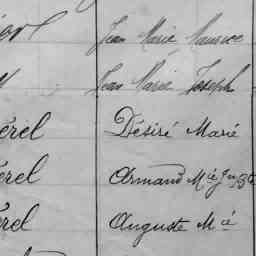 Jean Marie Maurice
Jean Marie Joseph
érel Désiré Marie
érel Armand Mie
érel Auguste Mie